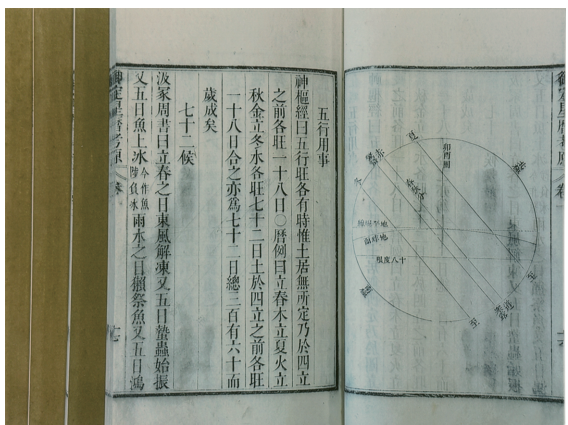 御定星曆考原
卷
卯酉圈
夏
至
冬
至
赤
道
黃
道
極度八十
五行用事
神樞經曰五行旺各有時惟土居無所定乃於四立
之前各旺一十八日○曆例曰立春木立夏火立
秋金立冬水各旺七十二日土於四立之前各旺
一十八日合之亦為七十二日總三百有六十而
歲成矣
七十二候
汲冢周書曰立春之日東風解凍又五日蟄蟲始振
又五日魚上冰今作魚陟負冰雨水之日獺祭魚又五日鴻
御定星曆考原
卷
十七